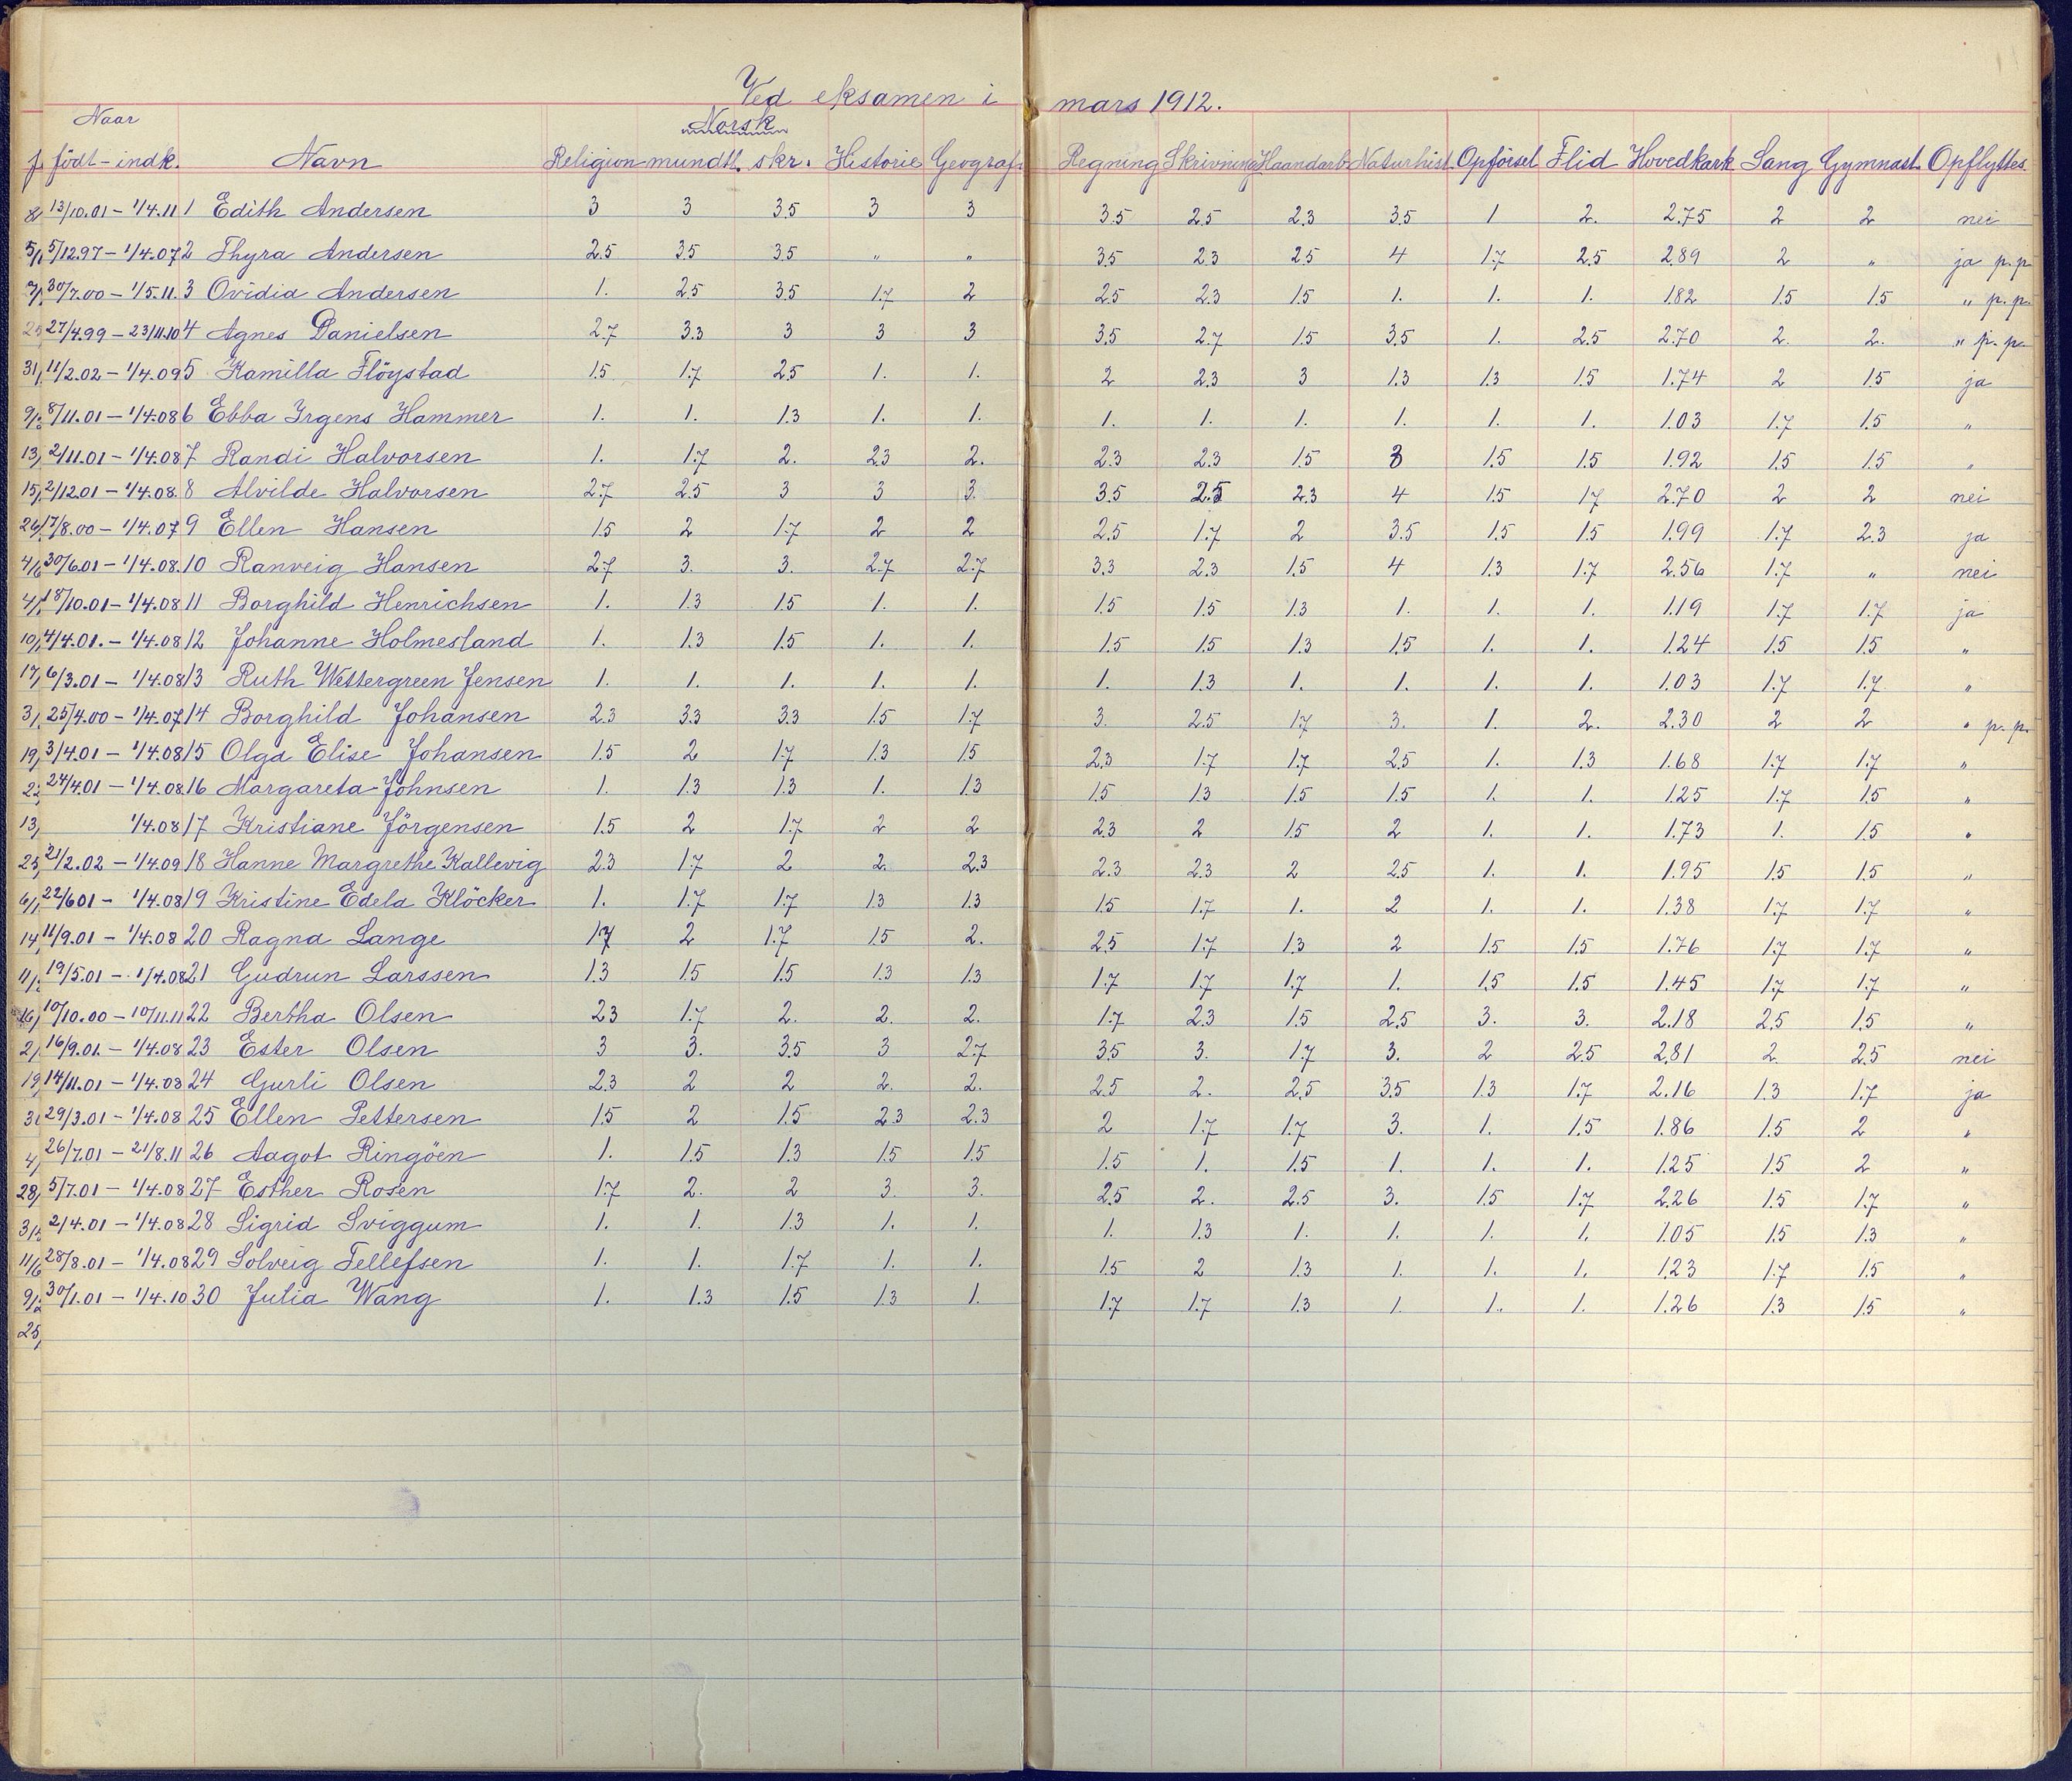 Ved eksamen i mars 1912.
Naar Norsk
födt - indk. Navn Religion mundtl. skr. Historie Geograf. Regning Skrivning Haandarb. Naturhist. Opförsel Flid Hovedkark Sang Gymnast. Opflyttes
13/10.01 - 1/4.11 1 Edith Andersen 3 3 3.5 3 3 3.5 2.5 2.3 3.5 1 2. 2.75 2 2 nei
5/12.97 - 1/4.07 2 Thyra Andersen 2.5 3.5 3.5 " " 3.5 2.3 2.5 4 1.7 2.5 2.89 2 " ja p.p.
30/7.00 - 1/5.11. 3 Ovidia Andersen 1. 2.5 3.5 1.7 2 2.5 2.3 1.5 1. 1. 1. 1.82 1.5 1.5 " p.p.
27/4.99 - 23/11.10 4 Agnes Danielsen 2.7 3.3 3 3 3 3.5 2.7 1.5 3.5 1. 2.5 2.70 2. 2. " p.p.
11/2.02 - 1/4.09 5 Kamilla Flöystad 1.5 1.7 2.5 1. 1. 2 2.3 3 1.3 1.3 1.5 1.74 2 1.5 ja
8/11.01 - 1/4.08 6 Ebba Irgens Hammer 1. 1. 1.3 1. 1. 1. 1. 1. 1. 1. 1. 1.03 1.7 1.5 "
2/11.01 - 1/4.08 7 Randi Halvorsen 1. 1.7 2. 2.3 2. 2.3 2.3 1.5 3 1.5 1.5 1.92 1.5 1.5 "
2/12.01 - 1/4.08. 8 Alvilde Halvorsen 2.7 2.5 3 3 3. 3.5 2.5 2.3 4 1.5 1.7 2.70 2 2 nei
17/8.00 - 1/4.07 9 Ellen Hansen 1.5 2 1.7 2 2 2.5 1.7 2 3.5 1.5 1.5 1.99 1.7 2.3 ja
30/6.01 - 1/4.08. 10 Ranveig Hansen 2.7 3. 3. 2.7 2.7 3.3 2.3 1.5 4 1.3 1.7 2.56 1.7 " nei
18/10.01 - 1/4.08 11 Borghild Henrichsen 1. 1.3 1.5 1. 1. 1.5 1.5 1.3 1. 1. 1. 1.19 1.7 1.7 ja
4/4.01. - 1/4.08 12 Johanne Holmesland 1. 1.3 1.5 1. 1. 1.5 1.5 1.3 1.5 1. 1. 1.24 1.5 1.5 "
6/3.01 - 1/4.08 13 Ruth Wettergreen Jensen 1. 1. 1. 1. 1. 1. 1.3 1. 1. 1. 1. 1.03 1.7 1.7 "
25/4.00 - 1/4.07 14 Borghild Johansen 2.3 3.3 3.3 1.5 1.7 3. 2.5 1.7 3. 1. 2. 2.30 2 2 " p.p.
3/4.01 - 1/4.08 15 Olga Elise Johansen 1.5 2 1.7 1.3 1.5 2.3 1.7 1.7 2.5 1. 1.3 1.68 1.7 1.7 "
24/4.01 - 1/4.08. 16 Margareta Johnsen 1. 1.3 1.3 1. 1.3 1.5 1.3 1.5 1.5 1. 1. 1.25 1.7 1.5 "
1/4.08 17 Kristiane Jörgensen 1.5 2 1.7 2 2 2.3 2 1.5 2 1. 1. 1.73 1. 1.5 "
21/2.02 - 1/4.09 18 Hanne Margrethe Kallevig 2.3 1.7 2 2. 2.3 2.3 2.3 2 2.5 1. 1. 1.95 1.5 1.5 "
22/6.01 - 1/4.08 19 Kristine Edela Klöcker 1. 1.7 1.7 1.3 1.3 1.5 1.7 1. 2 1. 1. 1.38 1.7 1.7 "
11/9.01 - 1/4.08 20 Ragna Lange 1.7 2 1.7 1.5 2. 2.5 1.7 1.3 2 1.5 1.5 1.76 1.7 1.7 "
19/5.01 - 1/4.08 21 Gudrun Larssen 1.3 1.5 1.5 1.3 1.3 1.7 1.7 1.7 1. 1.5 1.5 1.45 1.7 1.7 "
10/10.00 - 10/11.11 22 Bertha Olsen 2.3 1.7 2. 2. 2. 1.7 2.3 1.5 2.5 3. 3. 2.18 2.5 1.5 "
16/9.01. - 1/4.08 23 Ester Olsen 3 3. 3.5 3 2.7 3.5 3. 1.7 3. 2 2.5 2.81 2. 2.5 nei
14/11.01 - 1/4.08 24 Gurli Olsen 2.3 2 2 2. 2. 2.5 2. 2.5 3.5 1.3 1.7 2.16 1.3 1.7 ja
29/3.01 - 1/4.08 25 Ellen Pettersen 1.5 2 1.5 2.3 2.3 2 1.7 1.7 3. 1. 1.5 1.86 1.5 2 "
26/7.01 - 21/8.11 26 Aagot Ringöen 1. 1.5 1.3 1.5 1.5 1.5 1. 1.5 1. 1. 1. 1.25 1.5 2 "
5/7.01 - 1/4.08 27 Esther Rosen 1.7 2. 2 3. 3. 2.5 2. 2.5 3. 1.5 1.7 2.26 1.5 1.7 "
2/4.01 - 1/4.08 28 Sigrid Sviggum 1. 1. 1.3 1. 1. 1. 1.3 1. 1. 1. 1. 1.05 1.5 1.3 "
28/8.01 - 1/4.08 29 Solveig Tellefsen 1. 1. 1.7 1. 1. 1.5 2 1.3 1. 1. 1. 1.23 1.7 1.5 "
30/1.01 - 1/4.10 30 Julia Wang 1. 1.3 1.5 1.3 1. 1.7 1.7 1.3 1. 1. 1. 1.26 1.3 1.5 "